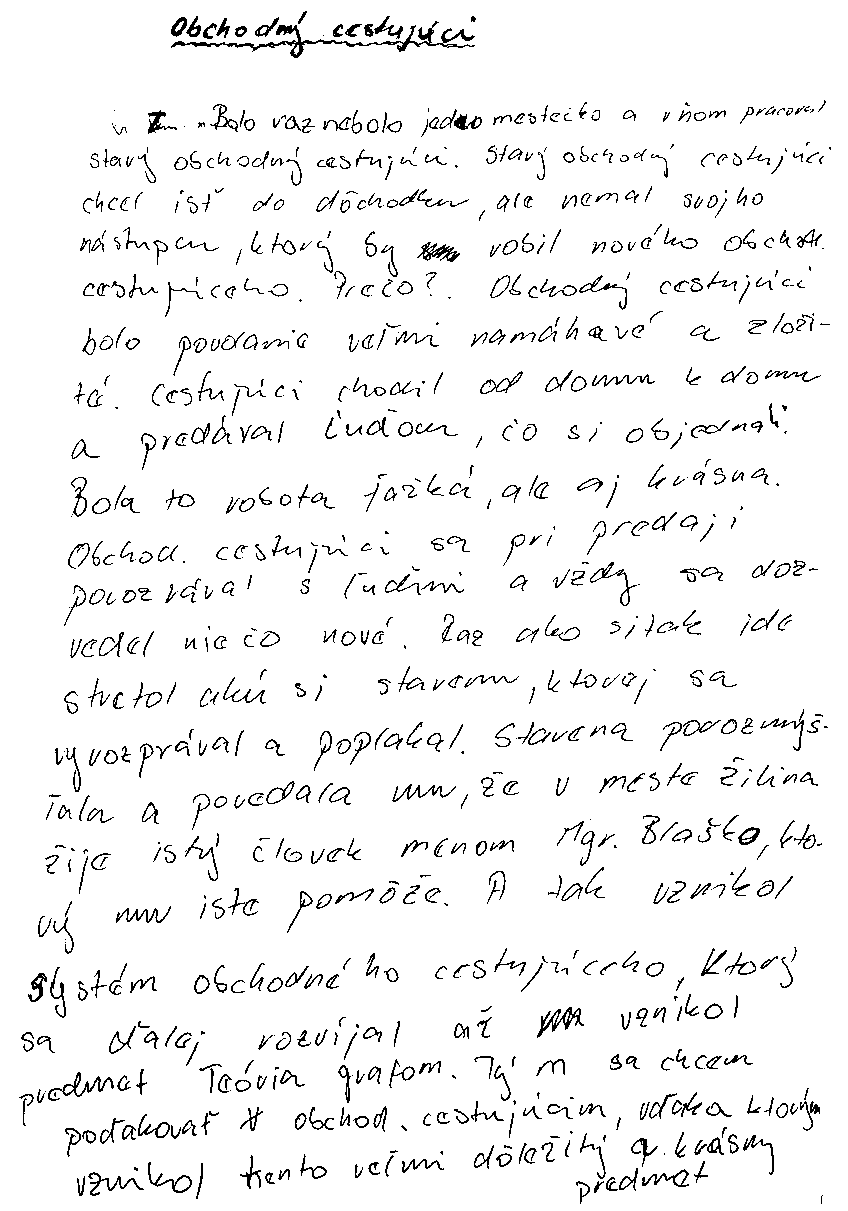 Obchodný cestujúci
Bolo raz nebolo jedno mestečko a v ňom pracoval
starý obchodný cestujúci. Starý obchodný cestujúci
chcel ísť do dôchodku, ale nemal svojho
nástupcu, ktorý by robil nového obchod.
cestujúceho. Prečo?. Obchodný cestujúci
bolo povolanie veľmi namáhavé a zloži-
té. Cestujúci chodil od domu k domu
a predával ľuďom, čo si objednali.
Bola to robota ťažká, ale aj krásna.
Obchod. cestujúci sa pri predaji
porozprával s ľuďmi a vždy sa doz-
vedel niečo nové. Raz ako si tak ide
stretol akú si starenu, ktorej sa
vyrozprával a poplakal. Starena porozmýš-
ľala a povedala mu, že v meste Žilina
žije istý človek menom Mgr. Blaško, kto-
rý mu iste pomôže. A tak vznikol
systém obchodného cestujúceho, ktorý
sa ďalej rozvíjal až vznikol
predmet Teória grafom. Tým sa chcem
poďakovať obchod. cestujúcim, vďaka ktorým
vznikol tento veľmi dôležitý a krásny
predmet